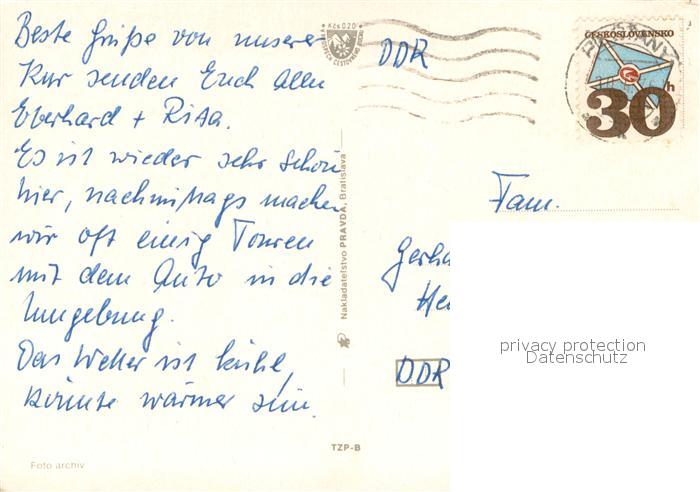 Beste Grüße von unserer
Kur senden Euch allen
Eberhard + Rita.
Es ist wieder sehr schön
hier, nachmittags machen
wir oft einig Touren
mit dem Auto in die
Umgebung.
Das Wetter ist kühl,
könnte wärmer sein.
Foto archiv
Kčs 0,20
Nakladateľstvo PRAVDA, Bratislava
TZP-B
DDR
ČESKOSLOVENSKO
30h
PIEŠŤANY
Fam.
Gerha
He
DDR
privacy protection
Datenschutz